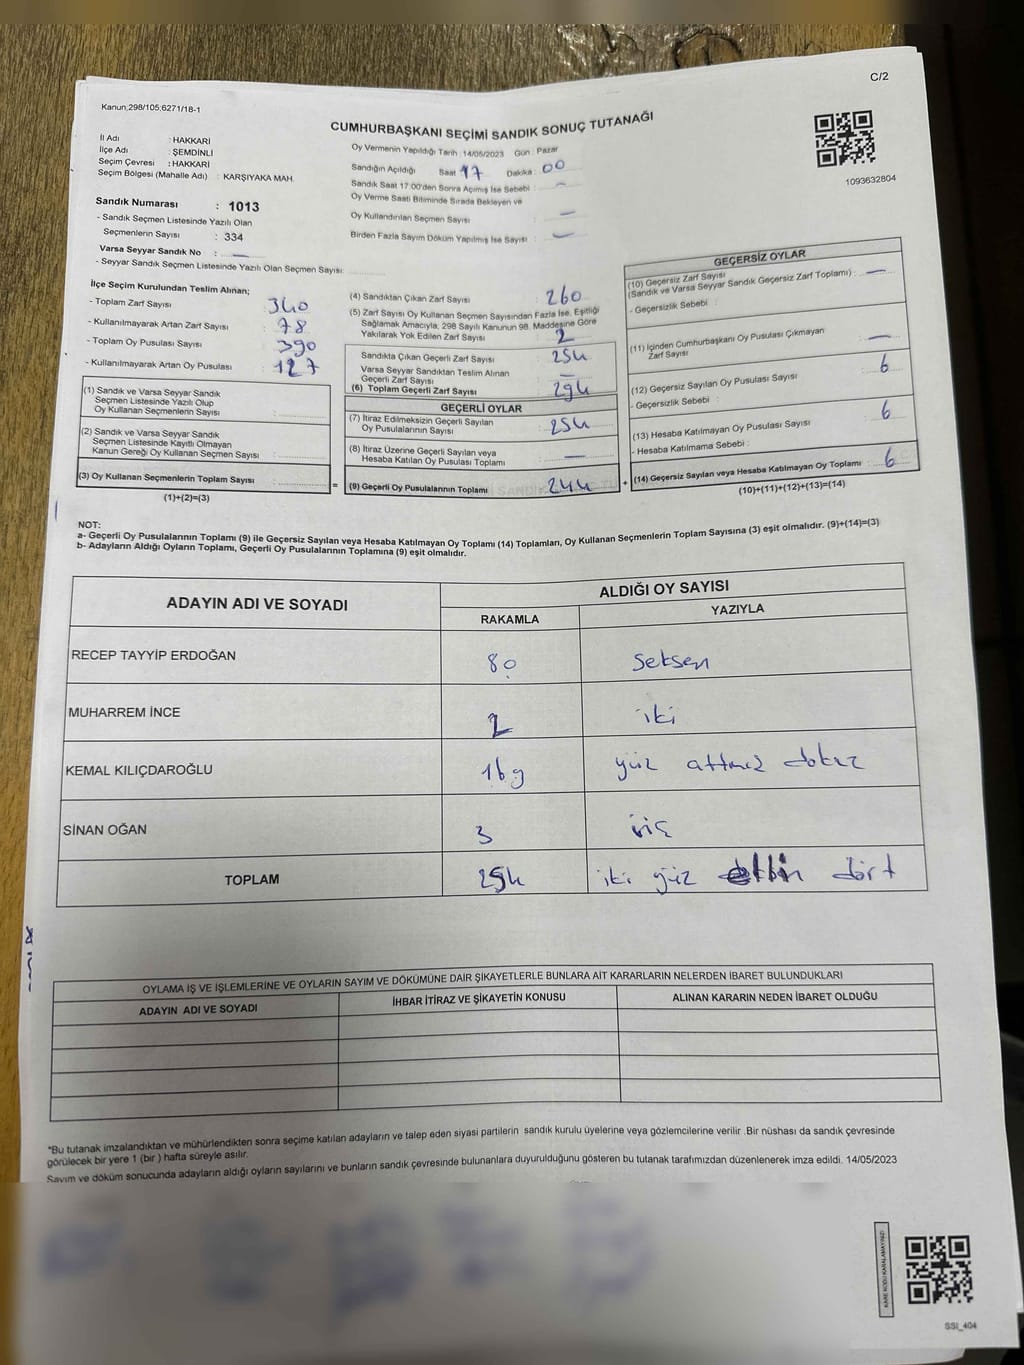 C/2
Kanun,298/105;6271/18-1
CUMHURBAŞKANI SEÇİMİ SANDIK SONUÇ TUTANAĞI
İl Adı : HAKKARİ
İlçe Adı : ŞEMDİNLİ
Seçim Çevresi : HAKKARİ
Seçim Bölgesi (Mahalle Adı) : KARŞIYAKA MAH.
Oy Vermenin Yapıldığı Tarih :14/05/2023 Gün : Pazar
Sandığın Açıldığı Saat 17 Dakika : 00
Sandık Saat 17:00'den Sonra Açımış İse Sebebi : —
Oy Verme Saati Bitiminde Sırada Bekleyen ve
Oy Kullandırılan Seçmen Sayısı : —
Birden Fazla Sayım Döküm Yapılmış İse Sayısı : —
1093632804
Sandık Numarası : 1013
- Sandık Seçmen Listesinde Yazılı Olan
Seçmenlerin Sayısı : 334
Varsa Seyyar Sandık No : —
- Seyyar Sandık Seçmen Listesinde Yazılı Olan Seçmen Sayısı:
İlçe Seçim Kurulundan Teslim Alınan;
- Toplam Zarf Sayısı : 340
- Kullanılmayarak Artan Zarf Sayısı : 78
- Toplam Oy Pusulası Sayısı : 390
- Kullanılmayarak Artan Oy Pusulası : 127
(1) Sandık ve Varsa Seyyar Sandık
Seçmen Listesinde Yazılı Olup
Oy Kullanan Seçmenlerin Sayısı :
(2) Sandık ve Varsa Seyyar Sandık
Seçmen Listesinde Kayıtlı Olmayan
Kanun Gereği Oy Kullanan Seçmen Sayısı :
(3) Oy Kullanan Seçmenlerin Toplam Sayısı :
(1)+(2)=(3)
(4) Sandıktan Çıkan Zarf Sayısı : 260
(5) Zarf Sayısı Oy Kullanan Seçmen Sayısından Fazla İse, Eşitliği
Sağlamak Amacıyla, 298 Sayılı Kanunun 98. Maddesine Göre
Yakılarak Yok Edilen Zarf Sayısı : 2
Sandıkta Çıkan Geçerli Zarf Sayısı : 254
Varsa Seyyar Sandıktan Teslim Alınan
Geçerli Zarf Sayısı : —
(6) Toplam Geçerli Zarf Sayısı : 294
GEÇERLİ OYLAR
(7) İtiraz Edilmeksizin Geçerli Sayılan
Oy Pusulalarının Sayısı : 254
(8) İtiraz Üzerine Geçerli Sayılan veya
Hesaba Katılan Oy Pusulası Toplamı : —
(9) Geçerli Oy Pusulalarının Toplamı : 244
GEÇERSİZ OYLAR
(10) Geçersiz Zarf Sayısı
(Sandık ve Varsa Seyyar Sandık Geçersiz Zarf Toplamı) : —
- Geçersizlik Sebebi :
(11) İçinden Cumhurbaşkanı Oy Pusulası Çıkmayan
Zarf Sayısı : —
(12) Geçersiz Sayılan Oy Pusulası Sayısı : 6
- Geçersizlik Sebebi :
(13) Hesaba Katılmayan Oy Pusulası Sayısı : 6
- Hesaba Katılmama Sebebi :
(14) Geçersiz Sayılan veya Hesaba Katılmayan Oy Toplamı : 6
(10)+(11)+(12)+(13)=(14)
NOT:
a- Geçerli Oy Pusulalarının Toplamı (9) ile Geçersiz Sayılan veya Hesaba Katılmayan Oy Toplamı (14) Toplamları, Oy Kullanan Seçmenlerin Toplam Sayısına (3) eşit olmalıdır. (9)+(14)=(3)
b- Adayların Aldığı Oyların Toplamı, Geçerli Oy Pusulalarının Toplamına (9) eşit olmalıdır.
ADAYIN ADI VE SOYADI ALDIĞI OY SAYISI
RAKAMLA YAZIYLA
RECEP TAYYİP ERDOĞAN 80 seksen
MUHARREM İNCE 2 iki
KEMAL KILIÇDAROĞLU 169 yüz altmış dokuz
SİNAN OĞAN 3 üç
TOPLAM 254 iki yüz dört
OYLAMA İŞ VE İŞLEMLERİNE VE OYLARIN SAYIM VE DÖKÜMÜNE DAİR ŞİKAYETLERLE BUNLARA AİT KARARLARIN NELERDEN İBARET BULUNDUKLARI
ADAYIN ADI VE SOYADI İHBAR İTİRAZ VE ŞİKAYETİN KONUSU ALINAN KARARIN NEDEN İBARET OLDUĞU
*Bu tutanak imzalandıktan ve mühürlendikten sonra seçime katılan adayların ve talep eden siyasi partilerin sandık kurulu üyelerine veya gözlemcilerine verilir .Bir nüshası da sandık çevresinde
görülecek bir yere 1 (bir ) hafta süreyle asılır.
Sayım ve döküm sonucunda adayların aldığı oyların sayılarını ve bunların sandık çevresinde bulunanlara duyurulduğunu gösteren bu tutanak tarafımızdan düzenlenerek imza edildi. 14/05/2023
KARE KODU KARALAMAYINIZ!
SSI_404